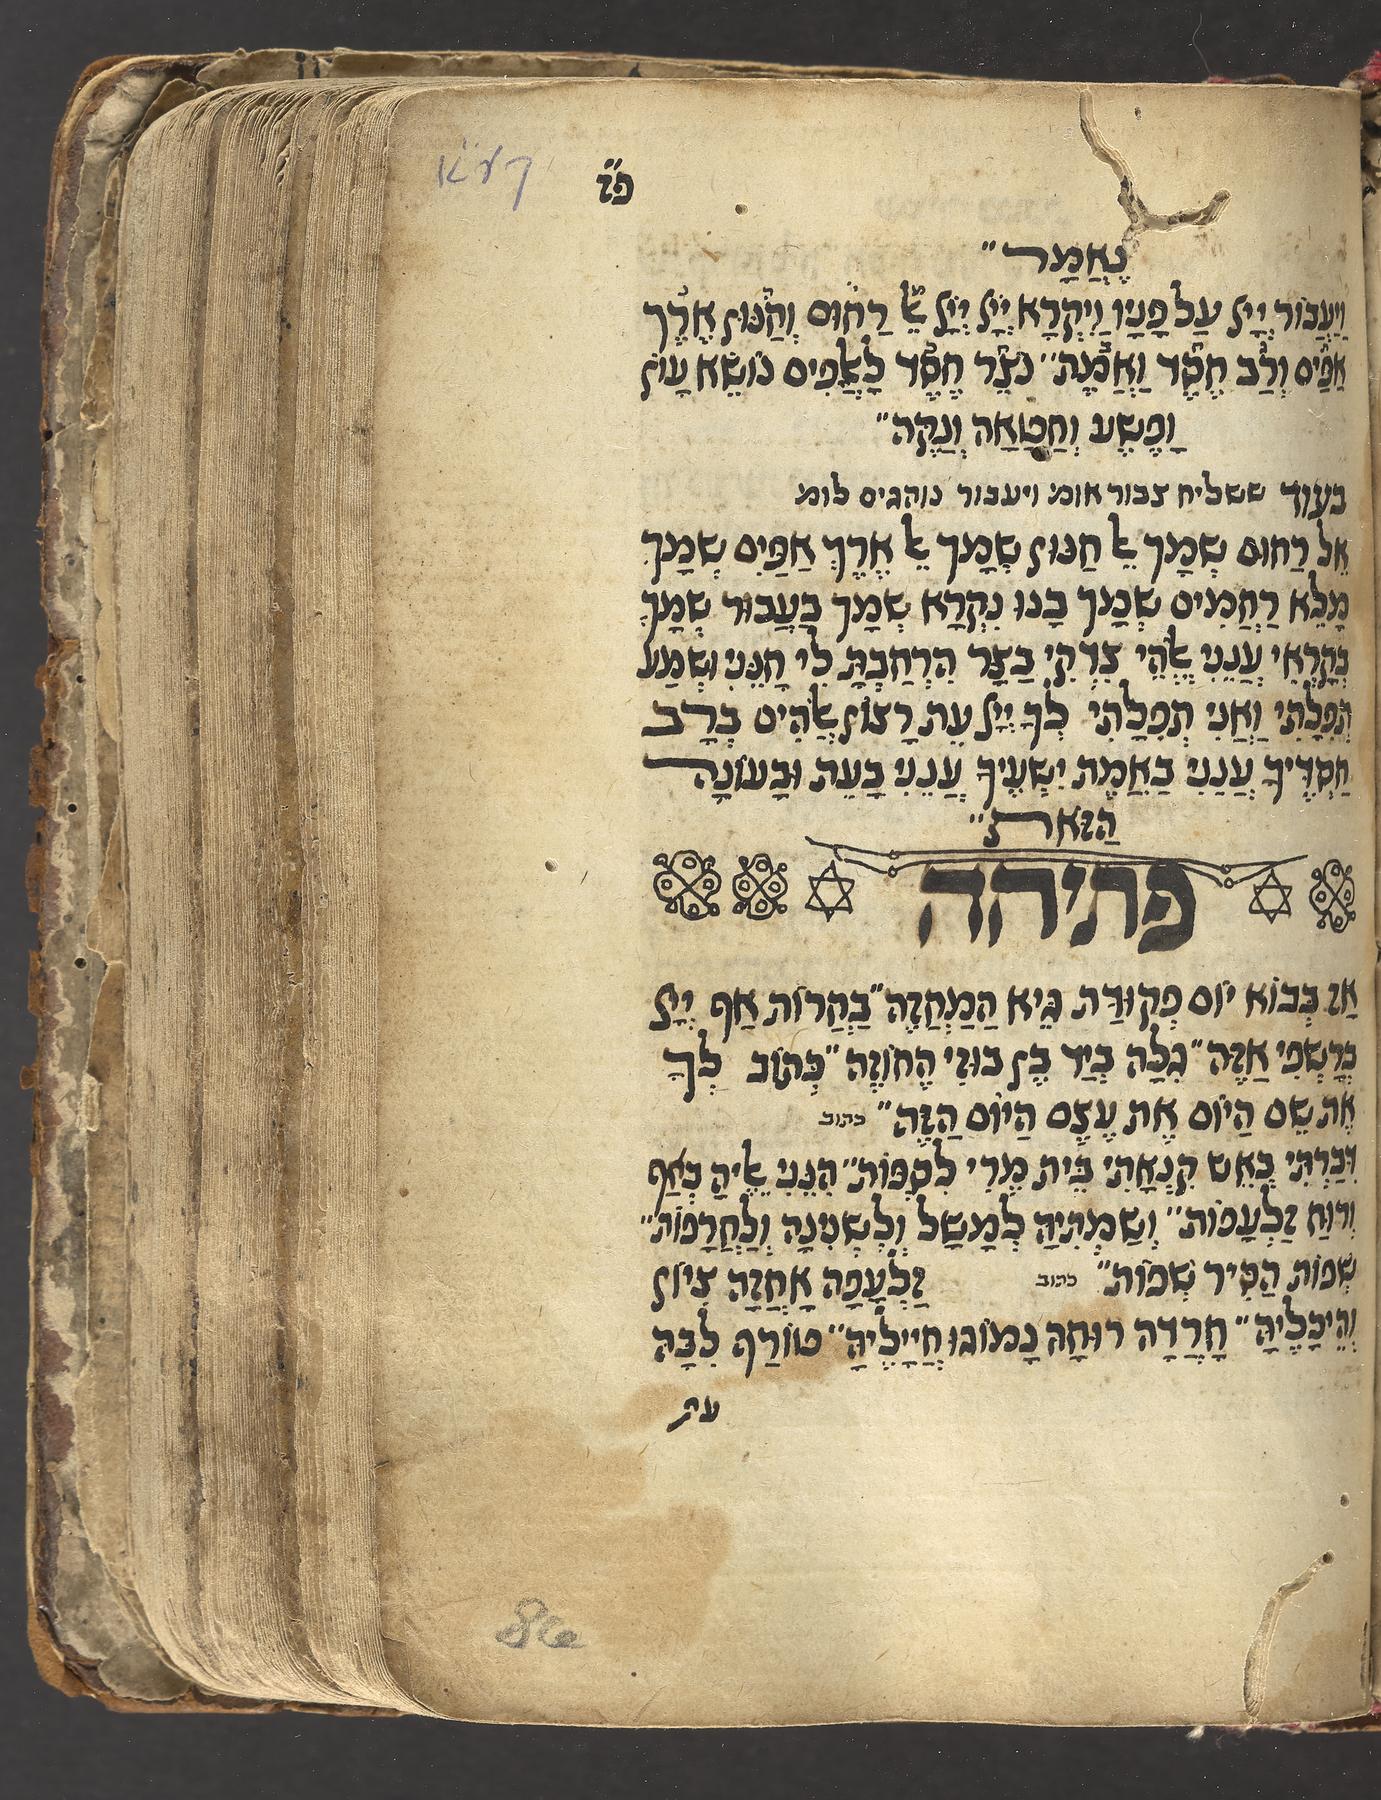 קע״א
פ״ז
נֶאֱמַר״
וַיַּעֲבוֹר יְיָ עַל פָּנָיו וַיִּקְרָא יְיָ יְיָ אֵל רַחוּם וְחַנּוּן אֶרֶךְ
אַפַּיִם וְרַב חֶסֶד וֶאֱמֶת״ נֹצֵר חֶסֶד לָאֲלָפִים נוֹשֵׂא עָוֹן
וָפֶשַׁע וְחַטָּאָה וְנַקֵּה״
בעוד ששליח צבור אומ׳ ויעבור נוהגים לומ׳
אֵל רַחוּם שְׁמָךְ אֵל חַנּוּן שְׁמָךְ אֵל אֶרֶךְ אַפַּיִם שְׁמָךְ
מָלֵא רַחֲמִים שְׁמָךְ בָּנוּ נִקְרָא שְׁמָךְ בַּעֲבוּר שְׁמָךְ
בְּקָרְאִי עֲנֵנִי אֱלֹהֵי צִדְקִי בַּצָּר הִרְחַבְתָּ לִי חָנֵּנִי וּשְׁמַע
תְּפִלָּתִי וַאֲנִי תְפִלָּתִי לְךָ יְיָ עֵת רָצוֹן אֱלֹהִים בְּרָב
חַסְדֶּיךָ עֲנֵנִי בֶּאֱמֶת יִשְׁעֶיךָ עֲנֵנִי בָּעֵת וּבָעוֹנָה
הַזֹּאת״
פתיחה
אָז בְּבוֹא יוֹם פְּקוּדַּת גֵּיא הַמַּחֲזֶה״ בַּחֲרוֹת אַף יְיָ
בְּרִשְׁפֵּי אַזֶּה״ גִּלָּה בְיַד בֶּן בּוּזִי הַחוֹזֶה״ כְּתוֹב לְךָ
אֶת שֵׁם הַיּוֹם אֶת עֶצֶם הַיּוֹם הַזֶּה״ כתוב
דִּבַּרְתִּי בְּאֵשׁ קִנְאָתִי בֵּית מֶרִי לִסְפּוֹת״ הִנְנִי אֵלֶיהָ בְּאַף
וְרוּחַ זַלְעָפוֹת״ וְשַׂמְתִּיהָ לְמָשָׁל וְלִשְׁנִינָה וְלַחֲרָפוֹת״
שְׁפוֹת הַסִּיר שְׁפוֹת״ כתוב זַלְעָפָה אָחֲזָה צִיּוֹן
וְהֵיכָלֶיהָ״ חָרְדָה רוּחָהּ נָמוֹגוּ חֲיָילֶיהָ״ טוֹרַף לִבָּהּ
עת